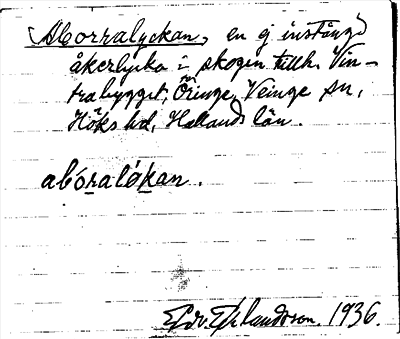 Aborralyckan, en ej instängd
åkerlycka i skogen tillh. Vin-
trabygget, Öringe, Veinge sn,
Höks hd, Hallands län.
abóralókan.
Edv. Erlandsson. 1936.